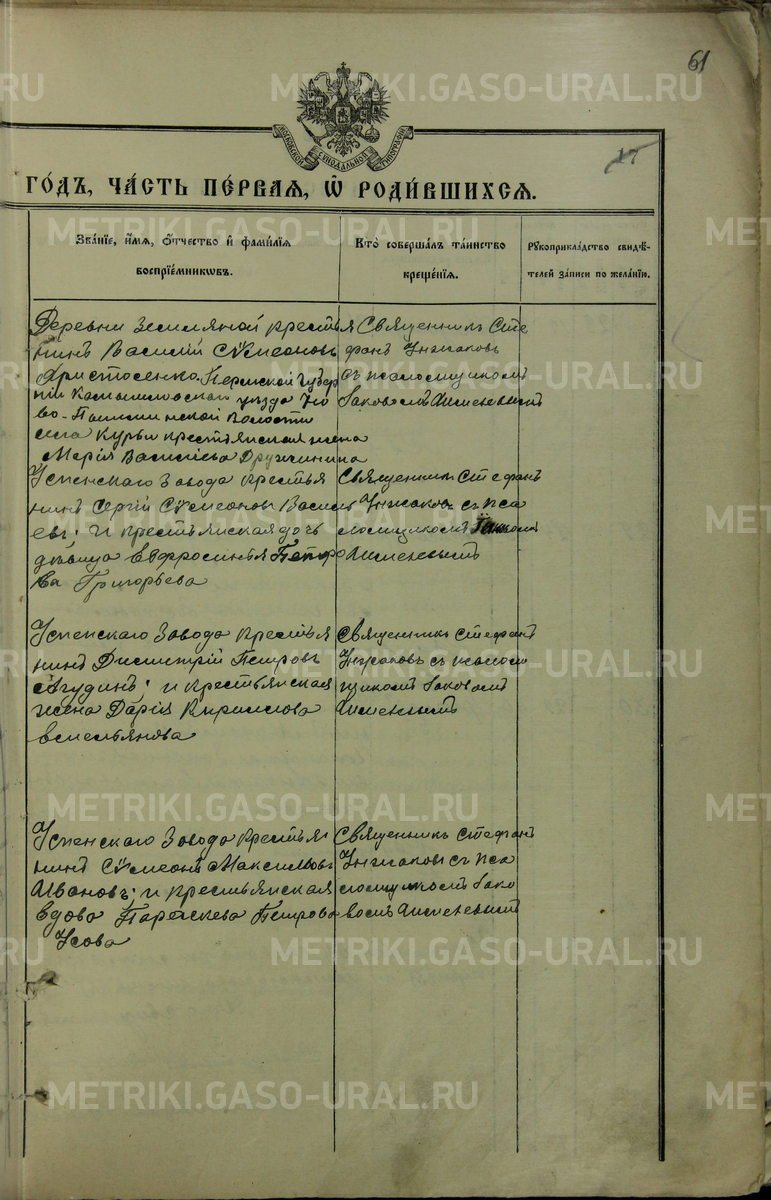 61
17
МОСКОВСКОЙ СѴНОДАЛЬНОЙ ТИПОГРАФІИ
ГО́ДЪ, ЧА́СТЬ ПЕ́РВАЯ, Ѡ҆ РОДИ́ВШИХСЯ.
Зва́нїе, и҆́мя, ѻ҆́тчество и҆ фами́лїя воспрїе́мникѡвъ.
Кто̀ соверша́лъ та́инство креще́нїя.
Рꙋкоприкла́дство свидѣ́телей за́писи по жела́нїю.
Деревни Земляной крестья
нинъ Василій Сѵмеоновъ
Аристосенко. Пермской губер
ніи Камышловскаго уезда Но
во-Пышминской волости
села Курьи крестьянская жена
Марія Василіева Дружинина
Священникъ Сте
фанъ Унжаковъ
съ псаломщикомъ
Іаковомъ
Успенскаго Завода крестья
нинъ Сергій Сѵмеоновъ Василь
евъ; и крестьянская дочь
дѣвица Евфросинья Петро
ва Григорьева
Священникъ Стефанъ
Унжаковъ съ пса
ломщикомъ
Успенскаго Завода крестья
нинъ Димитрій Петровъ
Ягудинъ; и крестьянская
жена Дарія Кириллова
Емельянова
Священникъ Стефанъ
Унжаковъ съ псалом
щикомъ Іаковомъ
Успенскаго Завода крестья
нинъ Сѵмеонъ Максимовъ
Ивановъ; и крестьянская
вдова Параскева Петрова
Усова
Священникъ Стефанъ
Унжаковъ съ пса
ломщикомъ Іако
вомъ
METRIKI.GASO-URAL.RU